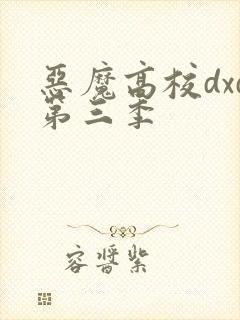 惡魔高校dxd
第三季
容醬紫